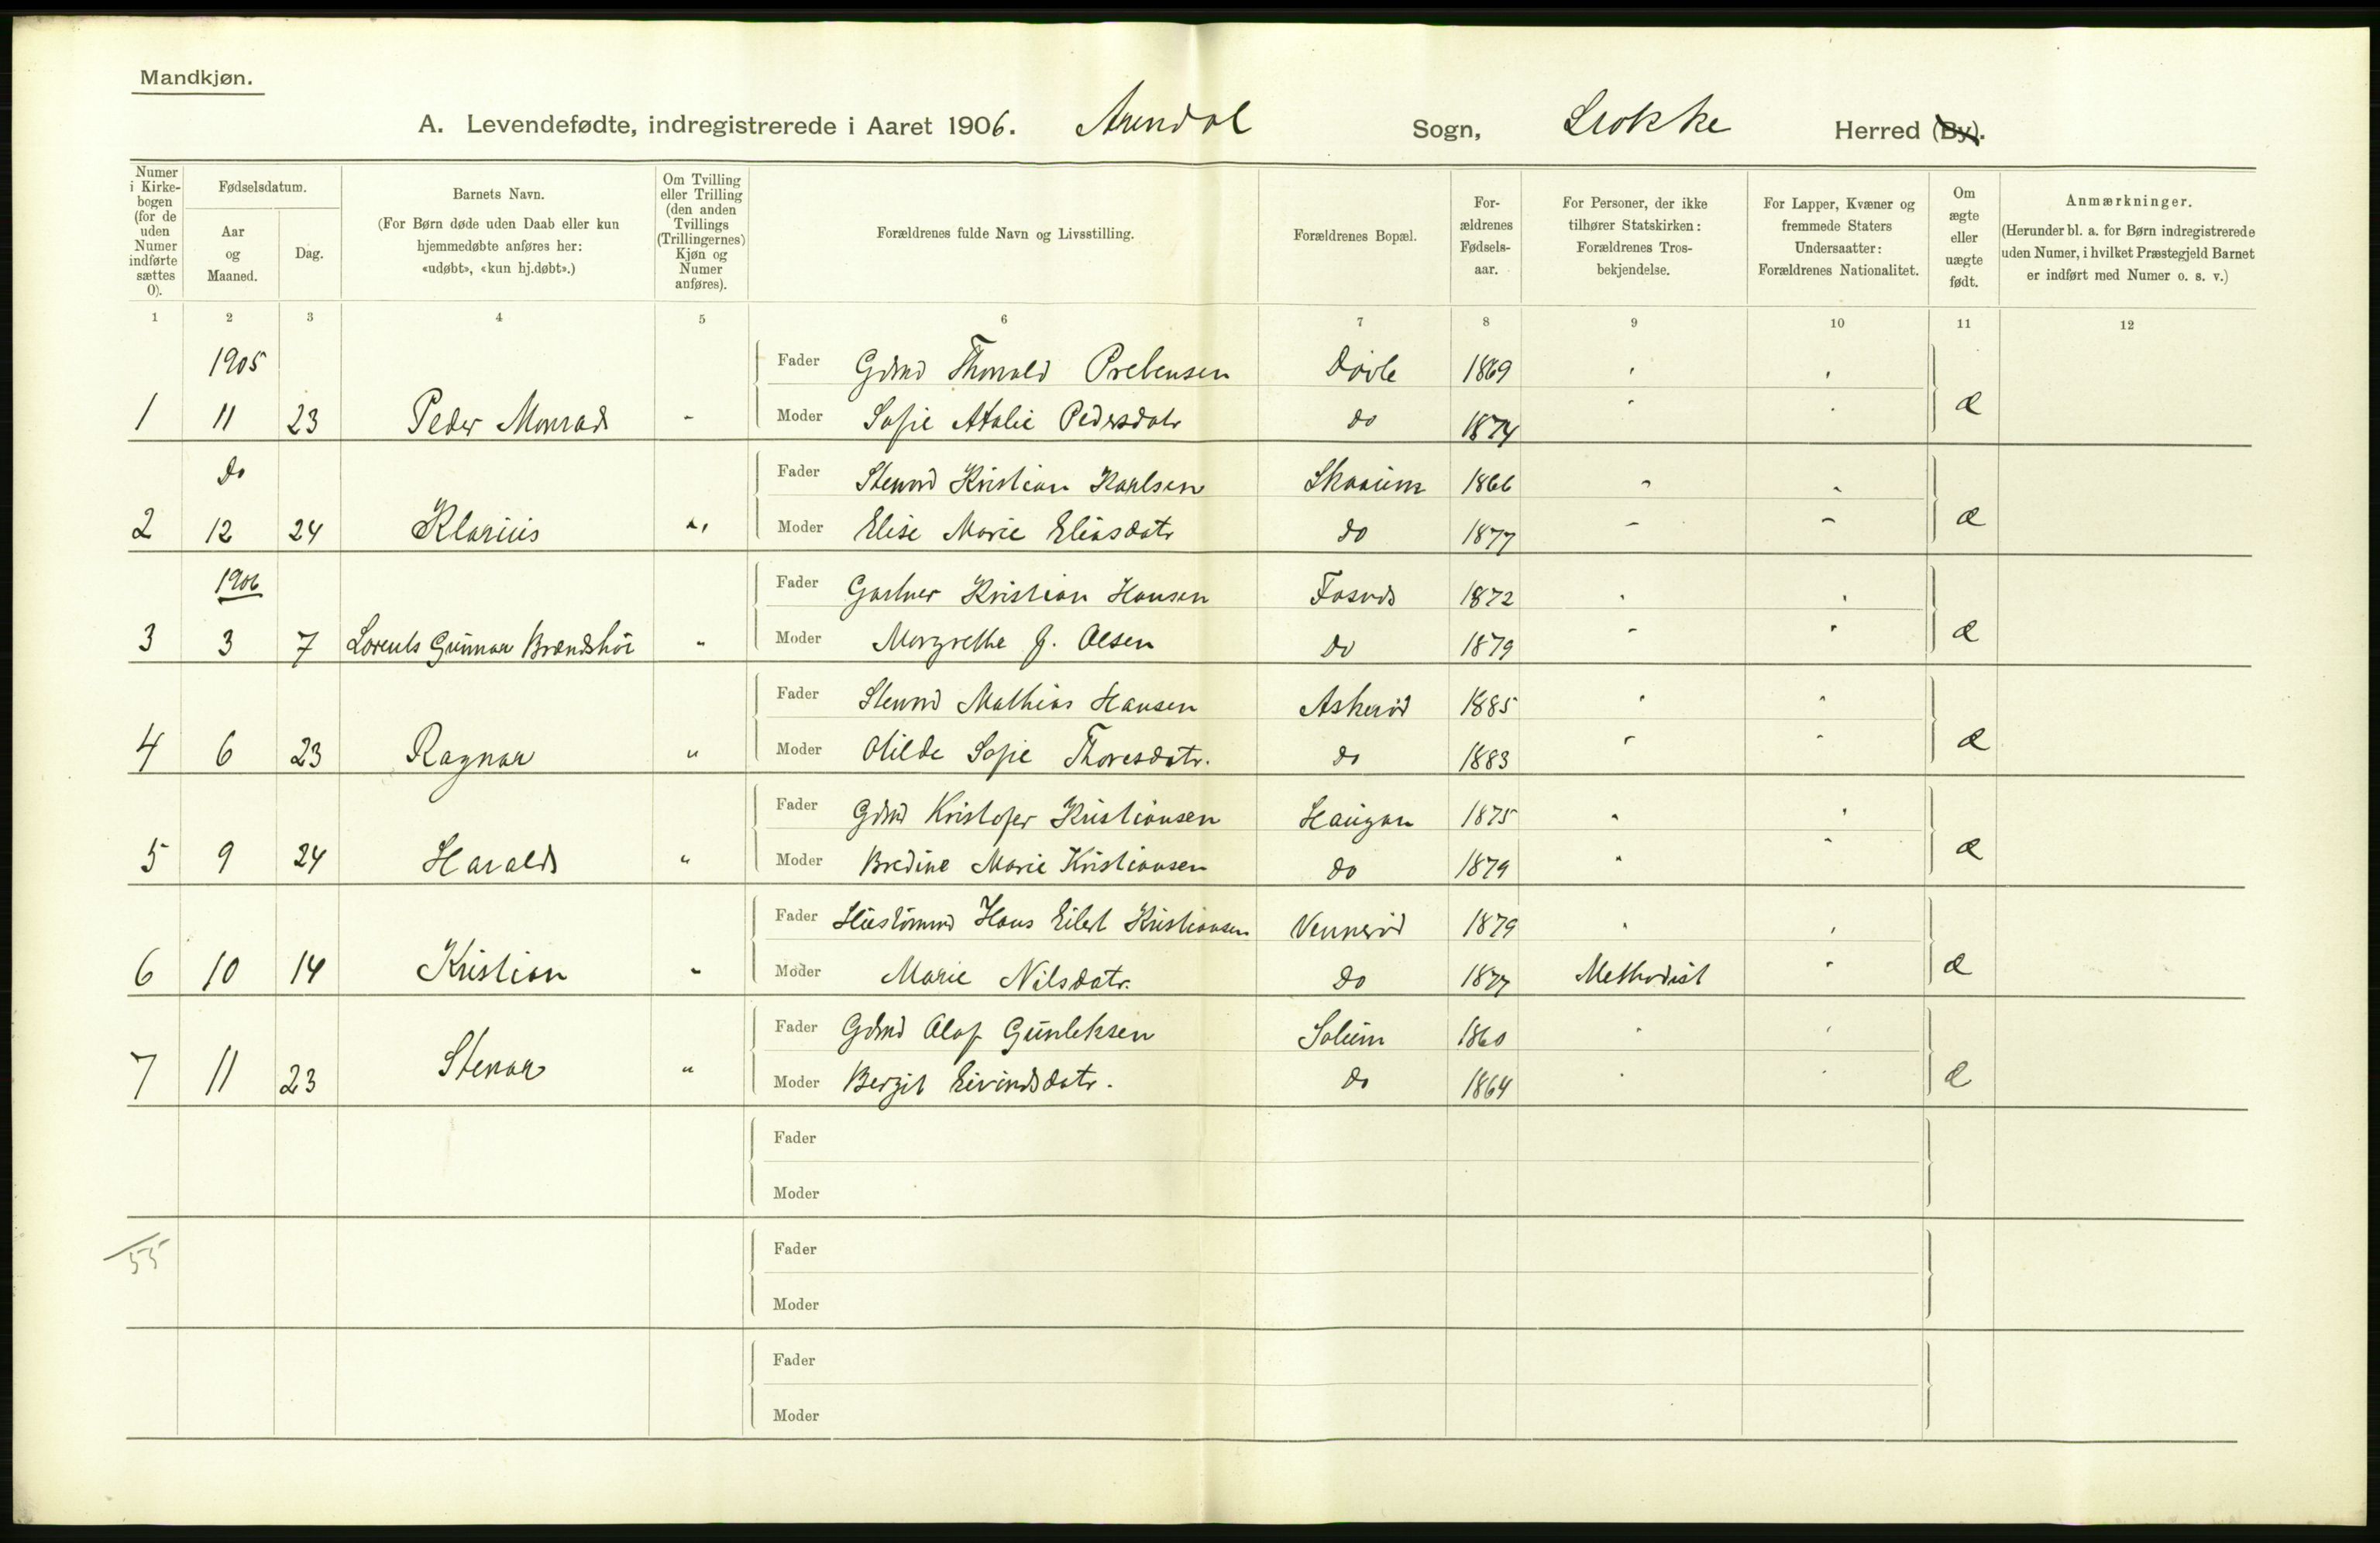 Mandkjøn.
A. Levendefødte, indregistrerede i Aaret 1906. Arendal Sogn, Stokke Herred (By).
Numer i Kirkebogen (for de uden Numer indførte sættes 0).
Fødselsdatum.
Aar og Maaned.
Dag.
Barnets Navn.
(For Børn døde uden Daab eller kun hjemmedøbte anføres her: «udøbt», «kun hj.døbt».)
Om Tvilling eller Trilling (den anden Tvillings (Trillingernes) Kjøn og Numer anføres).
Forældrenes fulde Navn og Livsstilling.
Forældrenes Bopæl.
Forældrenes Fødselsaar.
For Personer, der ikke tilhører Statskirken: Forældrenes Trosbekjendelse.
For Lapper, Kvæner og fremmede Staters Undersaatter: Forældrenes Nationalitet.
Om ægte eller uægte født.
Anmærkninger.
(Herunder bl. a. for Børn indregistrerede uden Numer, i hvilket Præstegjeld Barnet er indført med Numer o. s. v.)
1 2 3 4 5 6 7 8 9 10 11 12
1905 Fader Gdmd Thorvald Prebensen 1869
1 11 23 Peder Monrad - Moder Sofie Atalie Pedersdatr do 1874 æ
do Fader Stenmd Kristian Karlsen Skaaum 1866
2 12 24 Klarius " Moder Elise Marie Eliasdatr do 1877 æ
1906 Fader Gartner Kristian Hansen 1872
3 3 7 Lorents Gunnar " Moder Margrethe J. Olsen do 1879 æ
Fader Stenmd Mathias Hansen Askerød 1885
4 6 23 Ragnar " Moder Otilde Sofie Thoresdatr. do 1883 æ
Fader Gdmd Kristofer Kristiansen Haugan 1875
5 9 24 Harald " Moder Bredine Marie Kristiansen do 1879 æ
Fader Hans Eilert Kristiansen Vennerød 1879
6 10 14 Kristian " Moder Marie Nilsdatr. do 1877 Methodist æ
Fader Gdmd Olaf Gunleksen Solum 1860
7 11 23 Stenar " Moder Bergit Eivindsdatr. do 1864 æ
Fader
Moder
55 Fader
Moder
Fader
Moder